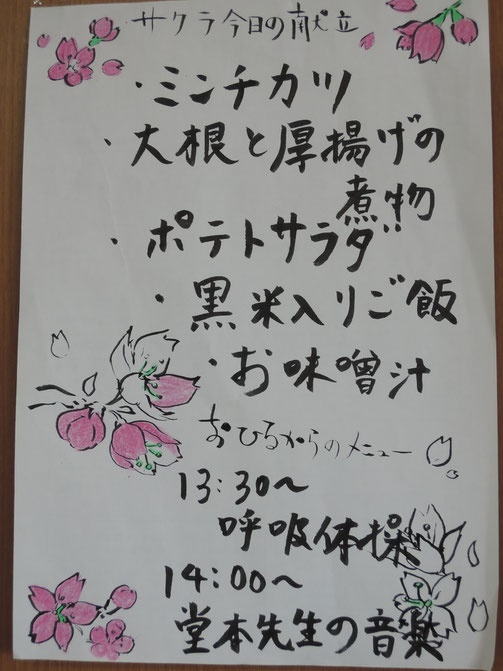 サクラ今日の献立
・ミンチカツ
・大根と厚揚げの
煮物
・ポテトサラダ
・黒米入りご飯
・お味噌汁
おひるからのメニュー
13:30〜
呼吸体操
14:00〜
堂本先生の音楽